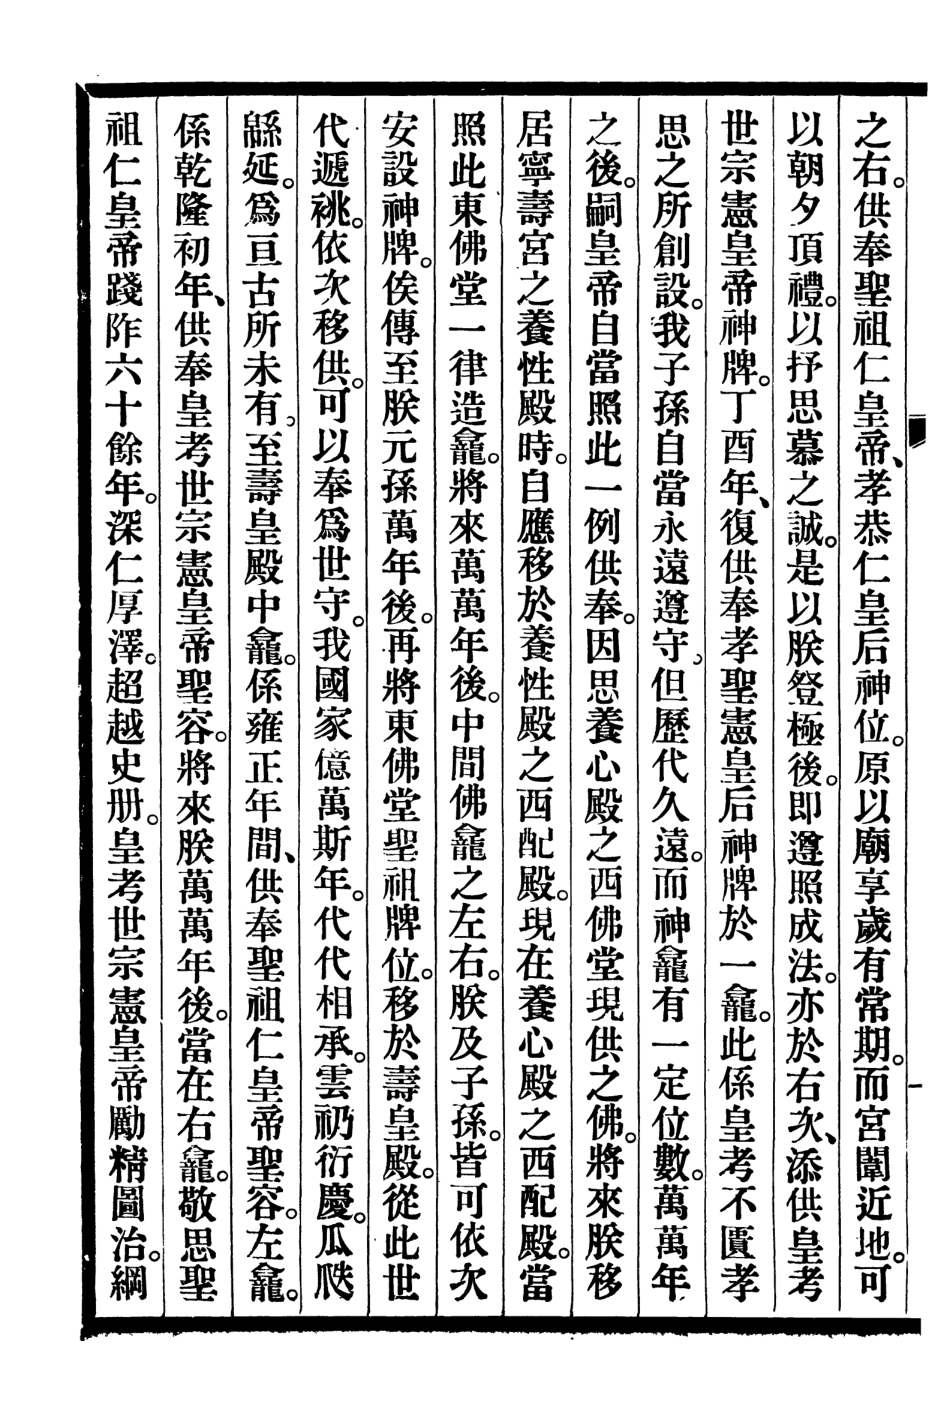 之右。供奉聖祖仁皇帝、孝恭仁皇后神位。原以廟享歲有常期。而宮闈近地。可
以朝夕頂禮。以抒思慕之誠。是以朕登極後。即遵照成法。亦於右次、添供皇考
世宗憲皇帝神牌。丁酉年、復供奉孝聖憲皇后神牌於一龕。此係皇考不匱孝
思之所創設。我子孫自當永遠遵守、但歷代久遠。而神龕有一定位數。萬萬年
之後。嗣皇帝自當照此一例供奉。因思養心殿之西佛堂現供之佛。將來朕移
居寧壽宮之養性殿時。自應移於養性殿之西配殿。現在養心殿之西配殿。當
照此東佛堂一律造龕。將來萬萬年後。中間佛龕之左右。朕及子孫。皆可依次
安設神牌。俟傳至朕元孫萬年後。再將東佛堂聖祖牌位。移於壽皇殿。從此世
代遞祧。依次移供。可以奉爲世守。我國家億萬斯年。代代相承。雲礽衍慶。瓜瓞
緜延。爲亘古所未有、至壽皇殿中龕。係雍正年間、供奉聖祖仁皇帝聖容。左龕。
係乾隆初年、供奉皇考世宗憲皇帝聖容。將來朕萬萬年後。當在右龕。敬思聖
祖仁皇帝踐阼六十餘年。深仁厚澤。超越史册。皇考世宗憲皇帝勵精圖治。綱